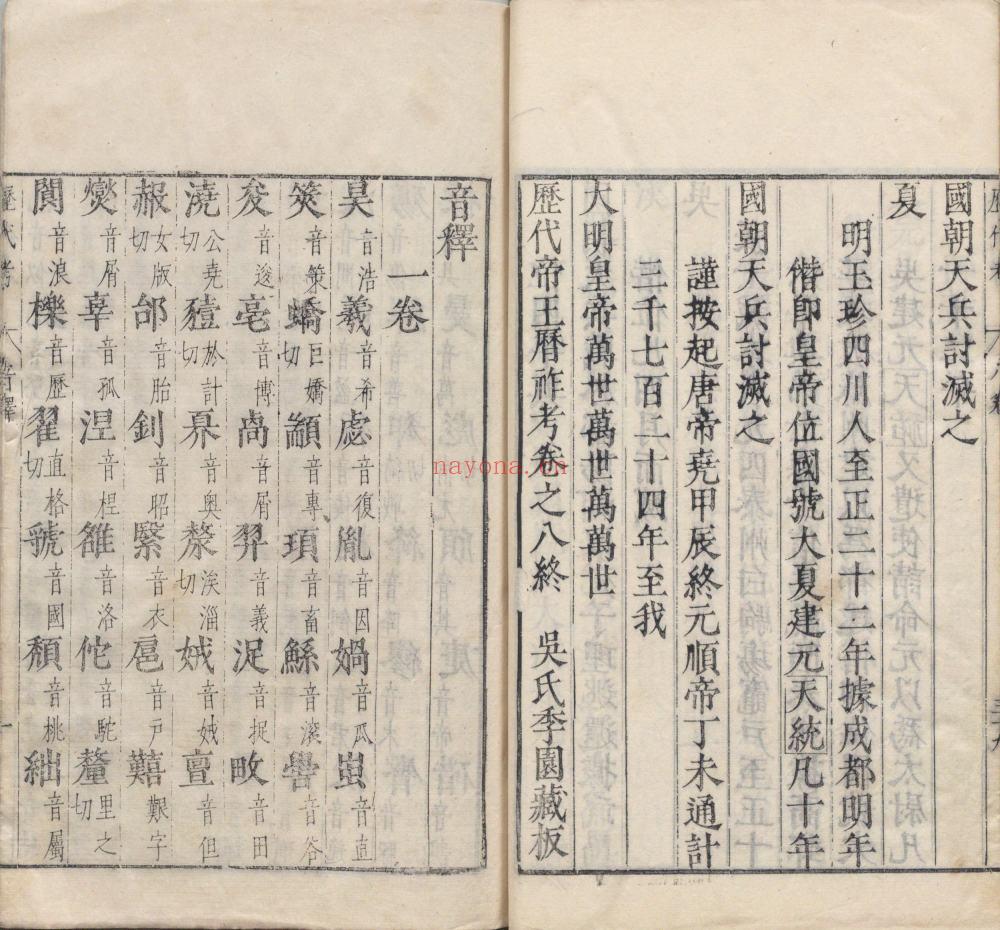 國朝天兵討滅之
夏
明玉珍四川人至正二十三年據成都明年
僭即皇帝位國號大夏建元天統凡十年
國朝天兵討滅之
謹按起唐帝堯甲辰終元順帝丁未通計
三千七百二十四年至我
大明皇帝萬世萬世萬萬世
歷代帝王曆祚考卷之八終 吳氏季園藏板
音釋
一卷
昊音浩羲音希虙音復胤音因媧音瓜蚩音直
筴音策蟜巨嬌切顓音專頊音畜鯀音滚嚳音谷
夋音逡亳音博卨音屑羿音義浞音捉畋音田
澆公堯切豷於計切奡音奥漦涘淄切娀音娀亶音但
赧女版切邰音胎釗音昭繄音衣扈音戶囏艱字
燮音屑辜音孤涅音桯雒音洛佗音駝釐里之切
閬音浪櫟音歷翟直格切虢音國頽音桃絀音屬
nayona.cn